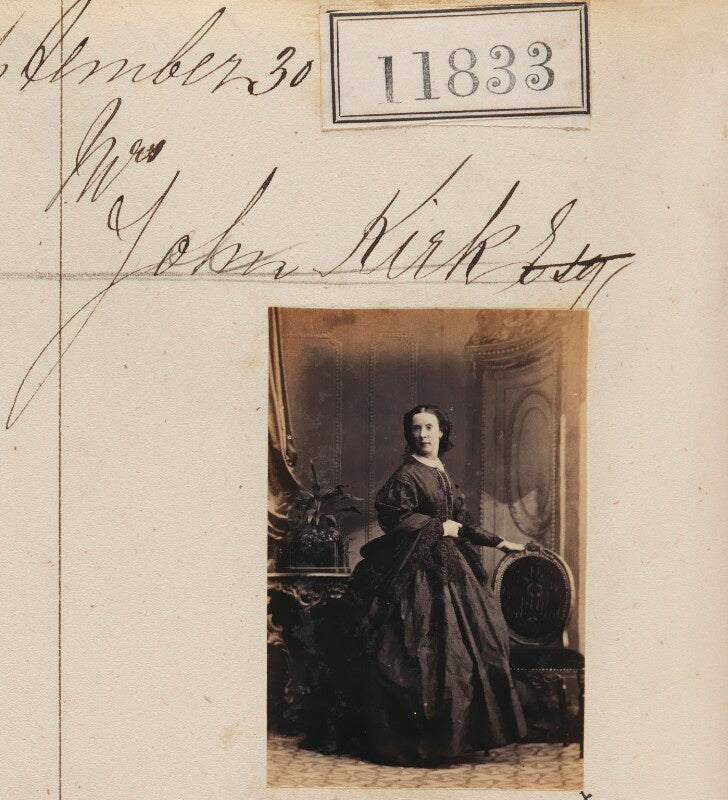 tember 30
11833
Mrs
John Kirk Esq